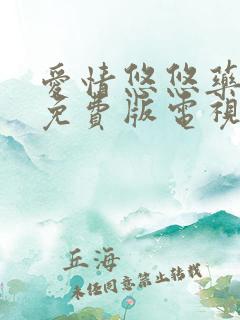 愛情悠悠藥
免費版電視
丘海
未經同意禁止轉載